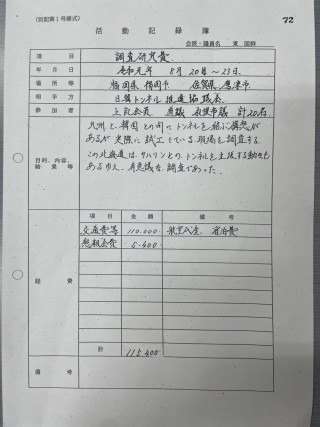 (別記第1号様式)
72
活動記録簿
会派・議員名 東 国幹
項目 調査研究費
年月日 令和元年 8月20日～23日
場所等 福岡県福岡市 佐賀県唐津市
相手方 日韓トンネル推進協議会
参加者 上記会員 道議 計20名
目的、内容、結果等
九州と韓国との間のトンネルを結ぶ構想が
あるが実際に試工している現場を調査する
この北海道はサハリンとのトンネルを主張する動きも
あるゆえ、有意義な調査であった。
経費
項目 金額 備考
交通費等 110,000 航空代金、宿泊費
懇親会費 5,400
計 115,400
備考